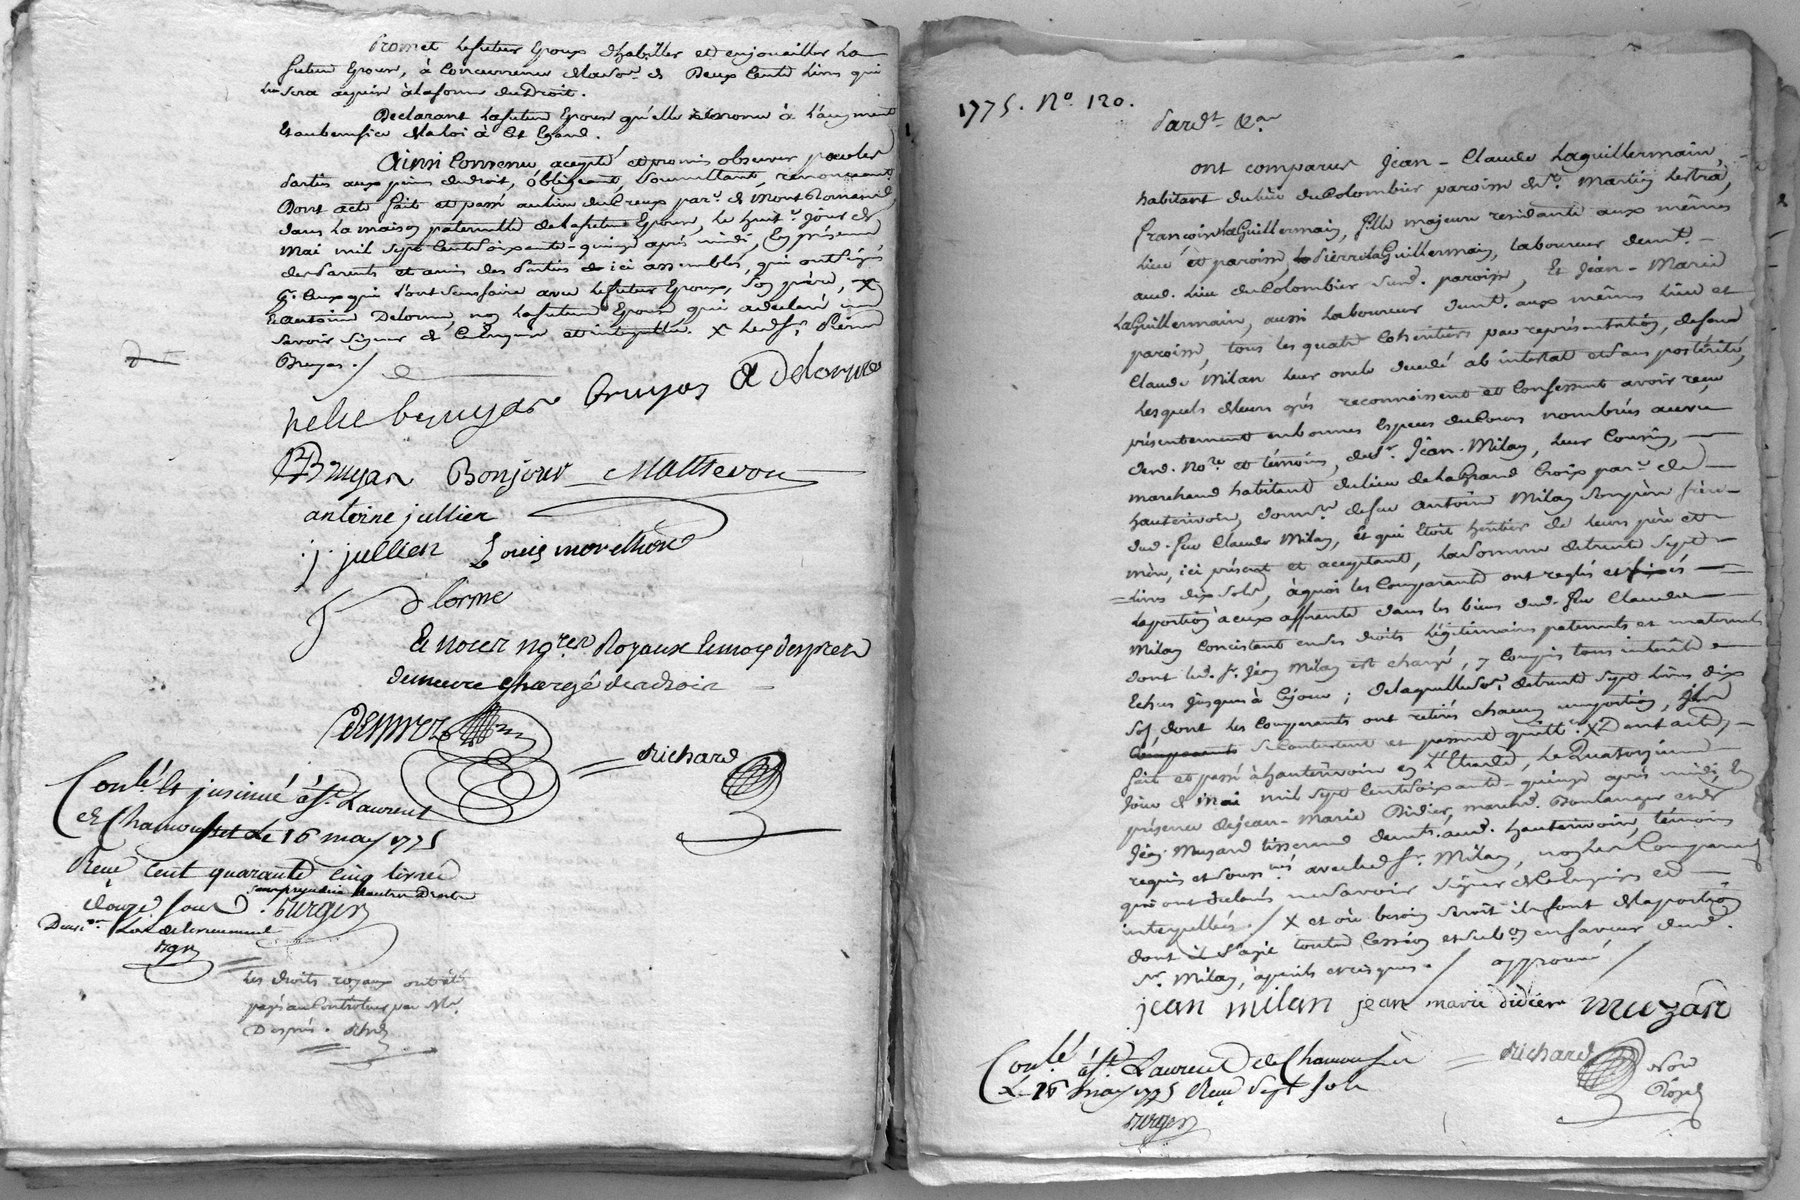 Promet le futur Epoux d'habiller et enjoailler la
future Epouse, à concurrence de la so.e de Deux Cents Livres qui
lui sera acquise à la forme du Droit.
Declarant la future Epouse qu'elle renonce à l'augment
et au benefice de la loi à cet Egard.
Ainsi Convenu accepté et promis observer par les
parties aux peines du droit, obligeant, soumettant, renonçeant
Dont acte fait et passé au lieu du Creux par.e de Montromand,
dans la maison paternelle de la future Epouse, le huit.e jour de
mai mil sept Cent soixante-quinze après midi, En présence
des parents et amis des parties ici assemblés, qui ont signé
Ceux qui l'ont sçu faire avec le futur Epoux, son père, X
Et antoine Delorme, non la future Epouse qui a déclaré ne
savoir signer de ce Enquise et interpellée. X led. S.r Pierre
Bruyas. /
bruyas bruyas A Delorme
Bruyas Bonjour Matthevon
antoine jullien
j. jullien Louis morellion
delorme
Et nous no.res Royaux le no.re Desprez
demeure chargé des droits
DESPREZ
Richard
Con.lé Et insinué à S.t Laurent
de Chamousset le 16 may 1775
Reçu Cent quarante Cinq livres
douze sous.
les droits royaux ont été
payés au Controleur par M.e
Desprez. Rhd
1775. N.o 120.
Pard.t &.a
ont comparus Jean-Claude Laguillermain,
habitant du lieu du Colombier paroisse de S.t Martin Lestra,
françoise Laguillermain, fille majeure residante aux mêmes
lieu et paroisse, Pierre Laguillermain, laboureur demt.
aud. lieu du Colombier sud. paroisse, Et Jean-Marie
Laguillermain, aussi laboureur demt. aux mêmes lieu et
paroisse, tous les quatre cohéritiers par représentation, de feu
Claude Milan leur oncle decedé ab intestat et sans postérité,
lesquels de leurs grés reconnoissent et confessent avoir reçu
présentement en bonnes Especes du Cours nombrées au vu
desd. No.re et témoins, de S.r Jean Milan, leur Cousin,
marchand habitant du lieu de la Grand Croix par.e de
hauterivoire, donat.re de feu Antoine Milan son père frère
dud. feu Claude Milan, et qui étoit héritier de leurs père et
mère, ici présent et acceptant, la somme de trente sept
livres dix sols, à quoi les Comparants ont reglés et fixés
la portion à eux afférente dans les biens dud. feu Claude
Milan Consistant en ses droits légitimaires paternels et maternels
dont led. S.r Jean Milan est chargé, y compris tous intérêts
Echus jusques à ce jour ; de laquelle so.e de trente sept livres dix
sols, dont les Comparants ont retirés chacun un portion, ils
se contentent et passent quitt.e X Dont acte,
fait et passé à hauterivoire en l'Etude, le Quatorzieme
jour de mai mil sept Cent soixante-quinze après midi, En
présence de jean-Marie Didier, march.d Boulanger et de
Jean Muzard tisserand demts. aud. hauterivoire, témoins
requis et souss.nés avec led. S.r Milan, non les Comparants
qui ont déclarés ne savoir signer de ce Enquis et
interpellés. / X et où besoin seroit ils font de la portion
dont il s'agit toute Cession et sub.on en faveur dud.
S.r Milan, à périls et risques. / approuvé /
jean milan jean marie didier muzard
Richard
Con.lé à S.t Laurent de Chamousset
Le 16 may 1775 Reçu Sept sols